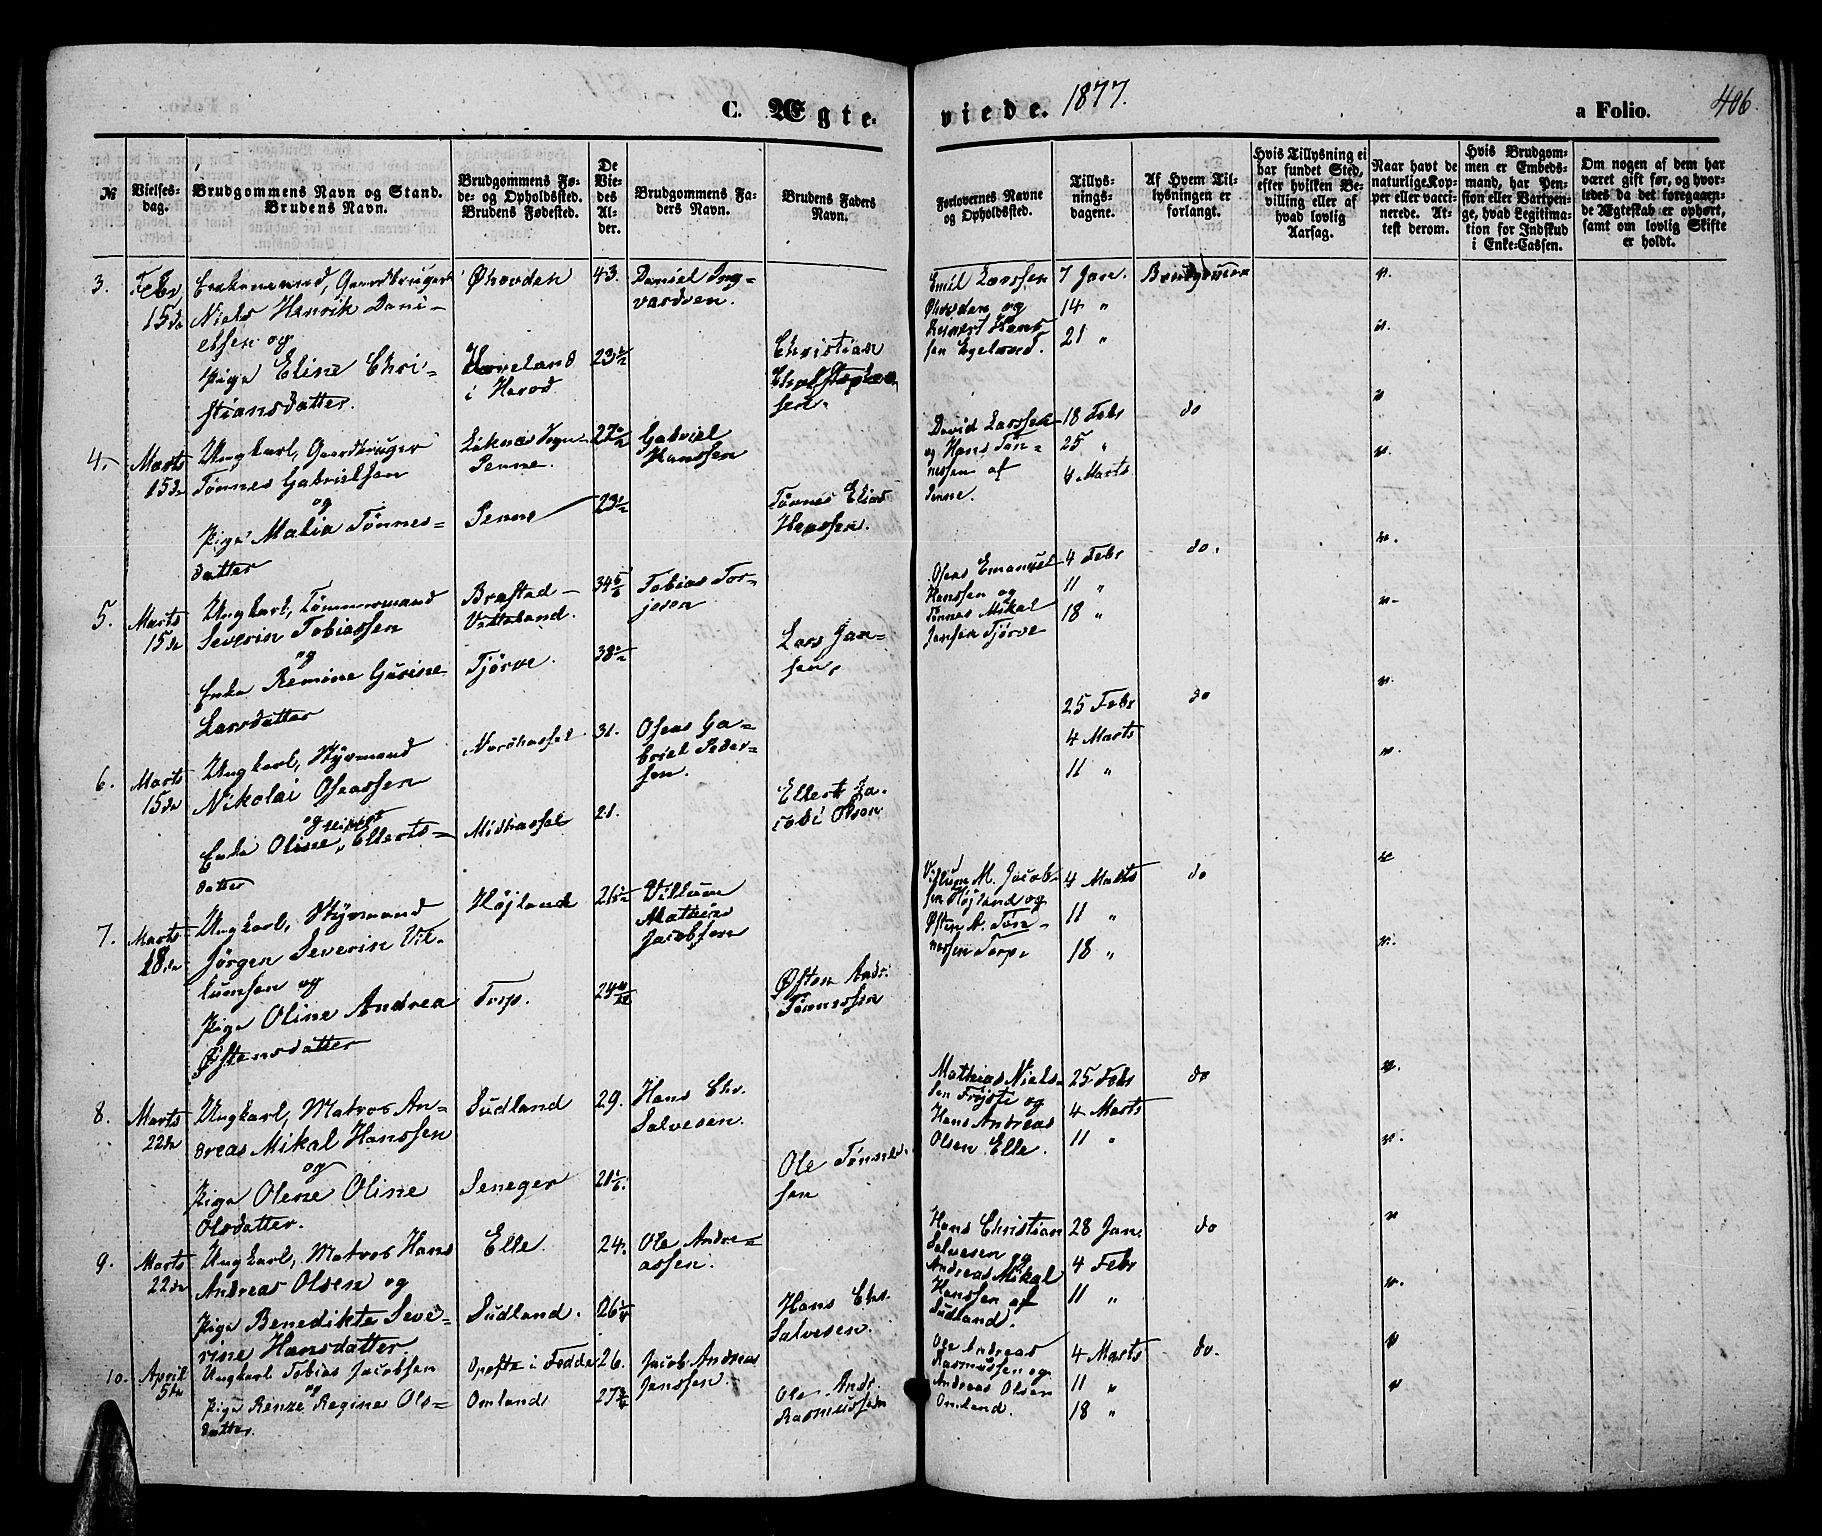 C. Ægte-
viede. 1877.
a Folio.
406.
№
Vielses-
dag.
Brudgommens Navn og Stand.
Brudens Navn.
Brudgommens Fø-
de- og Opholdssted.
Brudens Fødested.
De
Vie-
des
Al-
der.
Brudgommens Fa-
ders Navn.
Brudens Faders
Navn.
Forlovernes Navne
og Opholdssted.
Tillys-
nings-
dagene.
Af Hvem Til-
lysningen er
forlangt.
Hvis Tillysning ei
har fundet Sted,
efter hvilken Be-
villing eller af
hvad lovlig
Aarsag.
Naar havt de
naturlige Kop-
per eller vacci-
nerede. At-
test derom.
Hvis Brudgom-
men er Embeds-
mand, har Pen-
sion eller Vartpen-
ge, hvad Legitima-
tion for Indskud
i Enke-Cassen.
Om nogen af dem har
været gift før, og hvor-
ledes da det foregaaen-
de Ægteskab er ophørt,
samt om lovlig Skifte
er holdt.
3.
Febr
15de
Enkemand, Gaardbruger
Niels Henrik Dani-
elsen og
Pige Eline Chri-
stiansdatter.
Øhovden
Haveland
i Herod
43.
23½
Daniel Ing-
vardsen.
Christian
Christophe
sen.
Emil Larssen
Øhovden og
Reinert Hans
sen Egeland.
7 Jan.
14 "
21 "
Brudgommen
4.
Marts
15de
Ungkarl, Gaardbruger
Tønnes Gabrielsen
og
Pige Malia Tønnes-
datter
Liknes Sogn
Penne.
Penne
27½
23½
Gabriel
Hanssen
Tønnes Elias
Hanssen.
David Larssen
og Hans Tøn-
nessen af
Penne.
18 Febr
25 "
4 Marts
do
5.
Marts
15de
Ungkarl, Tømmermand
Severin Tobiassen
og
Enke Remine Gurine
Larsdatter
Brastad-
Vatteland.
Tjørve.
34 5/6
38½
Tobias Tor-
jesen
Lars Jan-
sen.
Oseas Emanuel
Hanssen og
Tønnes Mikal
Jansen Tjørve
4 Febr
11 "
18 "
do.
6.
Marts
15de
Ungkarl, Styrmand
Nikolai Oseassen
og
Enke Oline Ellerts-
datter
Nordhassel
Midhassel
31.
21.
Oseas Ga-
briel Peder-
sen.
Ellert Ja-
cobi Olsen
25 Febr
4 Marts
11 "
do
7.
Marts
18de
Ungkarl, Styrmand
Jørgen Severin Vil-
lumsen og
Pige Oline Andrea
Østensdatter
Højland
Torp.
26½
24 11/12
Villum
Mathias
Jacobsen
Østen Andr.
Tønnessen
Villum M. Jacob-
sen Højland og
Østen A. Tøn-
nessen Torp.
4 Marts
11 "
18 "
do
8.
Marts
22de
Ungkarl, Matros An-
dreas Mikal Hanssen
og
Pige Olene Oline
Olsdatter.
Sudland
Seneger
29.
21 1/6
Hans Chr.
Salvesen.
Ole Tønnes-
sen
Mathias Niels-
sen Frøjsti og
Hans Andreas
Olsen Elle.
25 Febr
4 Marts
11 "
do
9.
Marts
22de
Ungkarl, Matros Hans
Andreas Olsen og
Pige Benedikte Seve-
rine Hansdatter.
Elle.
Sudland.
24.
26¼
Ole Andre-
assen.
Hans Chr.
Salvesen.
Hans Christian
Salvesen og
Andreas Mikal
Hanssen af
Sudland.
28 Jan.
4 Febr
11 "
do
10.
April
5te
Ungkarl Tobias Jacobsen
og
Pige Renze Regine Ols-
datter.
Opofte i Fedde
Omland
26.
27¾
Jacob Andreas
Jenssen.
Ole Andr.
Rasmussen
Ole Andreas
Rasmussen og
Andreas Olsen
Omland.
4 Marts
11 "
18 "
do.